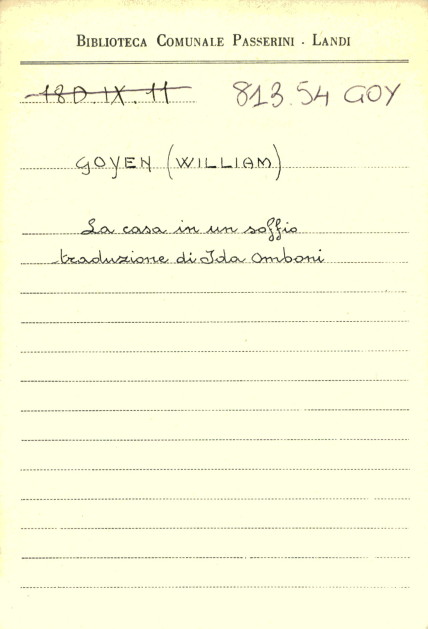 BIBLIOTECA COMUNALE PASSERINI - LANDI
18D.IX.11 813.54 GOY
GOYEN (WILLIAM)
La casa in un soffio
traduzione di Ida Omboni